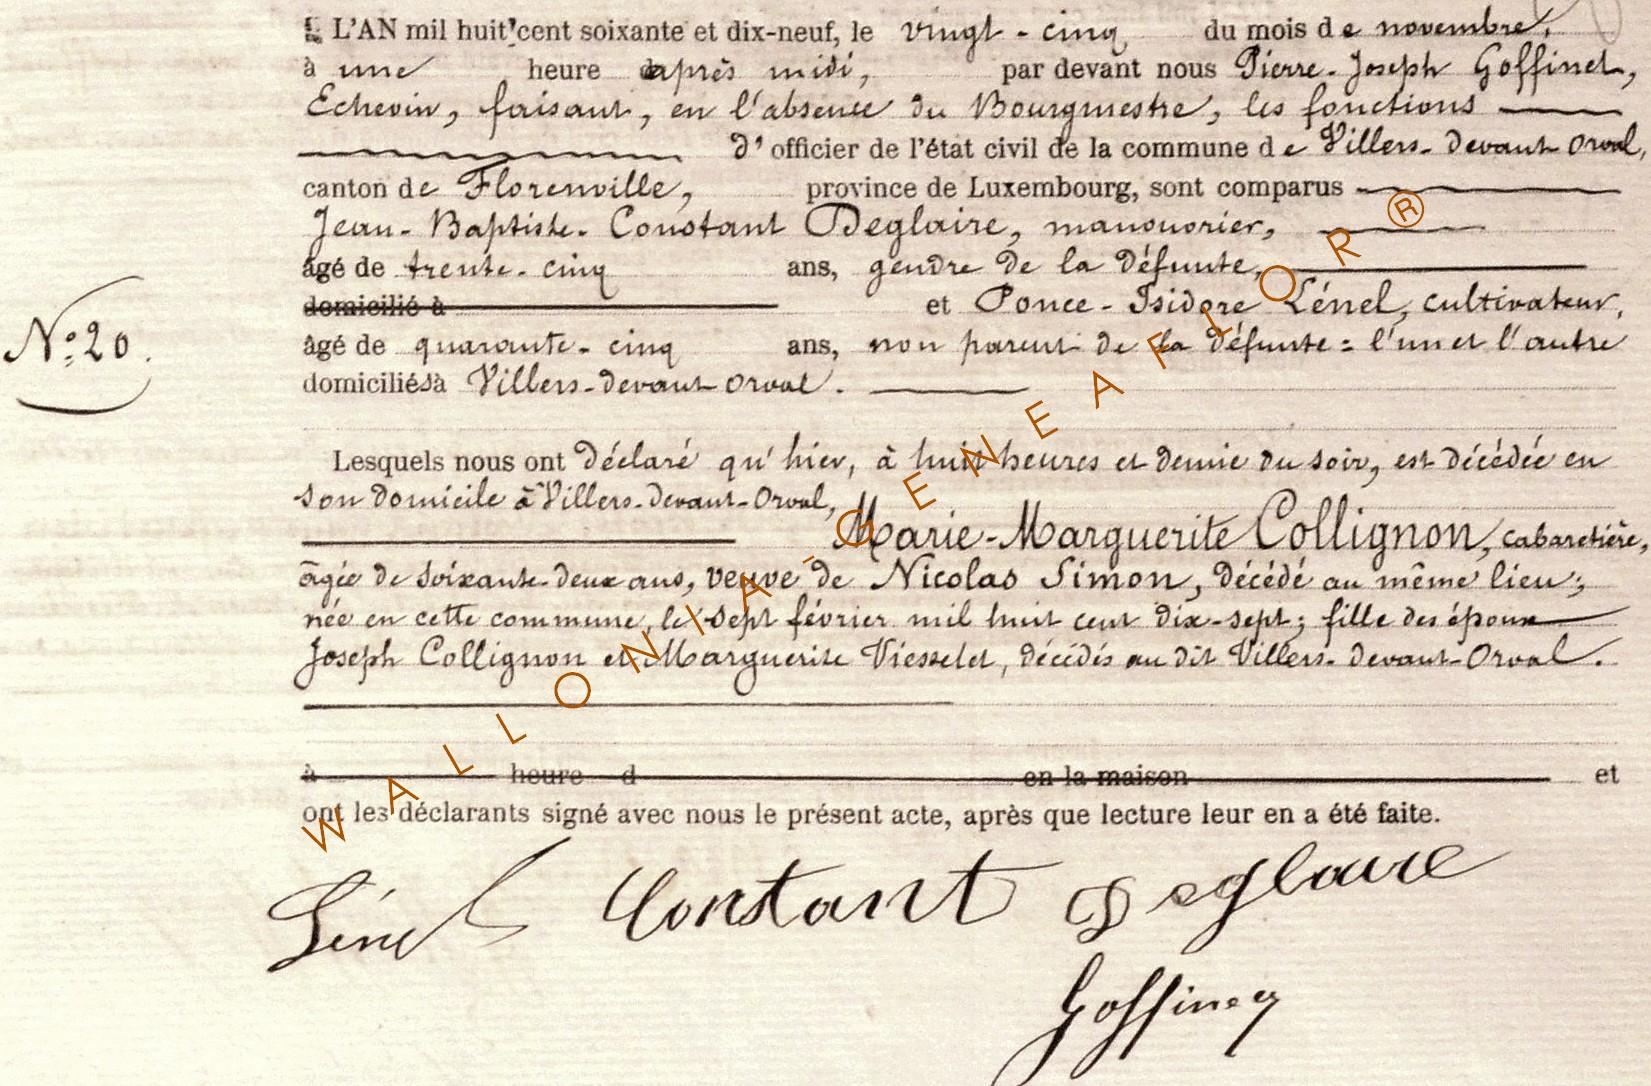 L'AN mil huit cent soixante et dix-neuf, le vingt-cinq du mois de novembre,
à une heure après midi, par devant nous Pierre-Joseph Goffinet,
Echevin, faisant, en l'absence du Bourgmestre, les fonctions
d'officier de l'état civil de la commune de Villers-devant-Orval,
canton de Florenville, province de Luxembourg, sont comparus
Jean-Baptiste-Constant Deglaire, manouvrier,
âgé de trente-cinq ans, gendre de la défunte,
domicilié à et Ponce-Isidore Lénel, cultivateur,
N° 20.
âgé de quarante-cinq ans, non parent de la défunte = l'un et l'autre
domiciliés à Villers-devant-Orval.
Lesquels nous ont déclaré qu'hier, à huit heures et demie du soir, est décédée en
son domicile à Villers-devant-Orval,
Marie-Marguerite Collignon, cabaretière,
âgée de soixante-deux ans, veuve de Nicolas Simon, décédé au même lieu;
née en cette commune, le sept février mil huit cent dix-sept; fille des époux
Joseph Collignon et Marguerite Viesselet, décédés au dit Villers-devant-Orval.
à heure d en la maison et
ont les déclarants signé avec nous le présent acte, après que lecture leur en a été faite.
Lénel Constant Deglaire
Goffinet
WALLONIA-GENEAFLOR®